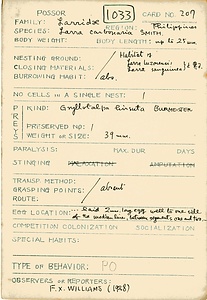 POSSOR 1033 CARD NO. 207
FAMILY: Larridae REGION: Philippines
SPECIES: Larra carbonaria SMITH
BODY WEIGHT: BODY LENGTH: up to 25 mm
NESTING GROUND: / Habitat is
CLOSING MATERIALS: Larra luzonensis
BURROWING HABIT: / abs. Larra sanguinea
NO CELLS IN A SINGLE NEST: 1
PREYS
KIND: Gryllotalpa hirsuta BURMEISTER
PRESERVED NO: 1
WEIGHT OR SIZE: 39 mm.
PARALYSIS: MAX. DUR DAYS
STINGING MALAXATION AMPUTATION
TRANSP. METHOD:
GRASPING POINTS: / absent
ROUTE:
EGG LOCATION: Laid 2 mm. long egg well to one side
of the median line, between segments one and two.
COMPETITION COLONIZATION SOCIALIZATION
SPECIAL HABITS:
TYPE OF BEHAVIOR: PO
OBSERVERS OR REPORTERS:
F. X. WILLIAMS (1928)